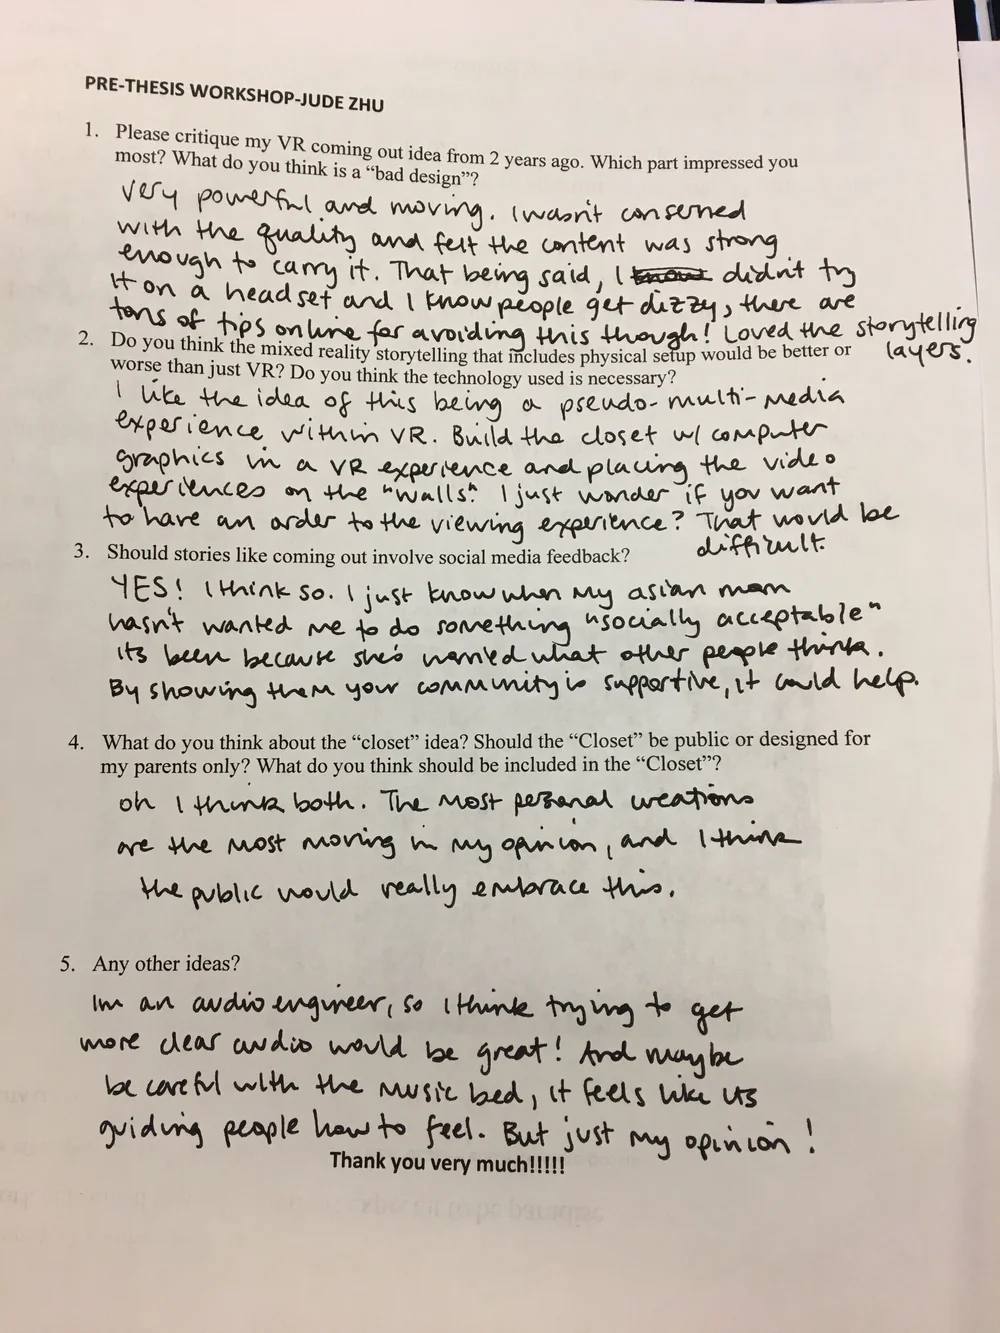 PRE-THESIS WORKSHOP-JUDE ZHU
1. Please critique my VR coming out idea from 2 years ago. Which part impressed you
most? What do you think is a “bad design”?
Very powerful and moving. I wasn't conserned
with the quality and felt the content was strong
enough to carry it. That being said, I didn't try
it on a headset and I know people get dizzy, there are
tons of tips online for avoiding this though! Loved the storytelling
layers.
2. Do you think the mixed reality storytelling that includes physical setup would be better or
worse than just VR? Do you think the technology used is necessary?
I like the idea of this being a pseudo-multi-media
experience within VR. Build the closet w/ computer
graphics in a VR experience and placing the video
experiences on the "walls". I just wonder if you want
to have an order to the viewing experience? That would be
difficult.
3. Should stories like coming out involve social media feedback?
YES! I think so. I just know when my asian mom
hasn't wanted me to do something "socially acceptable"
its been because she's worried what other people think.
By showing them your community is supportive, it could help.
4. What do you think about the “closet” idea? Should the “Closet” be public or designed for
my parents only? What do you think should be included in the “Closet”?
oh I think both. The most personal creations
are the most moving in my opinion, and I think
the public would really embrace this.
5. Any other ideas?
Im an audio engineer, so I think trying to get
more clear audio would be great! And maybe
be careful with the music bed, it feels like its
guiding people how to feel. But just my opinion!
Thank you very much!!!!!